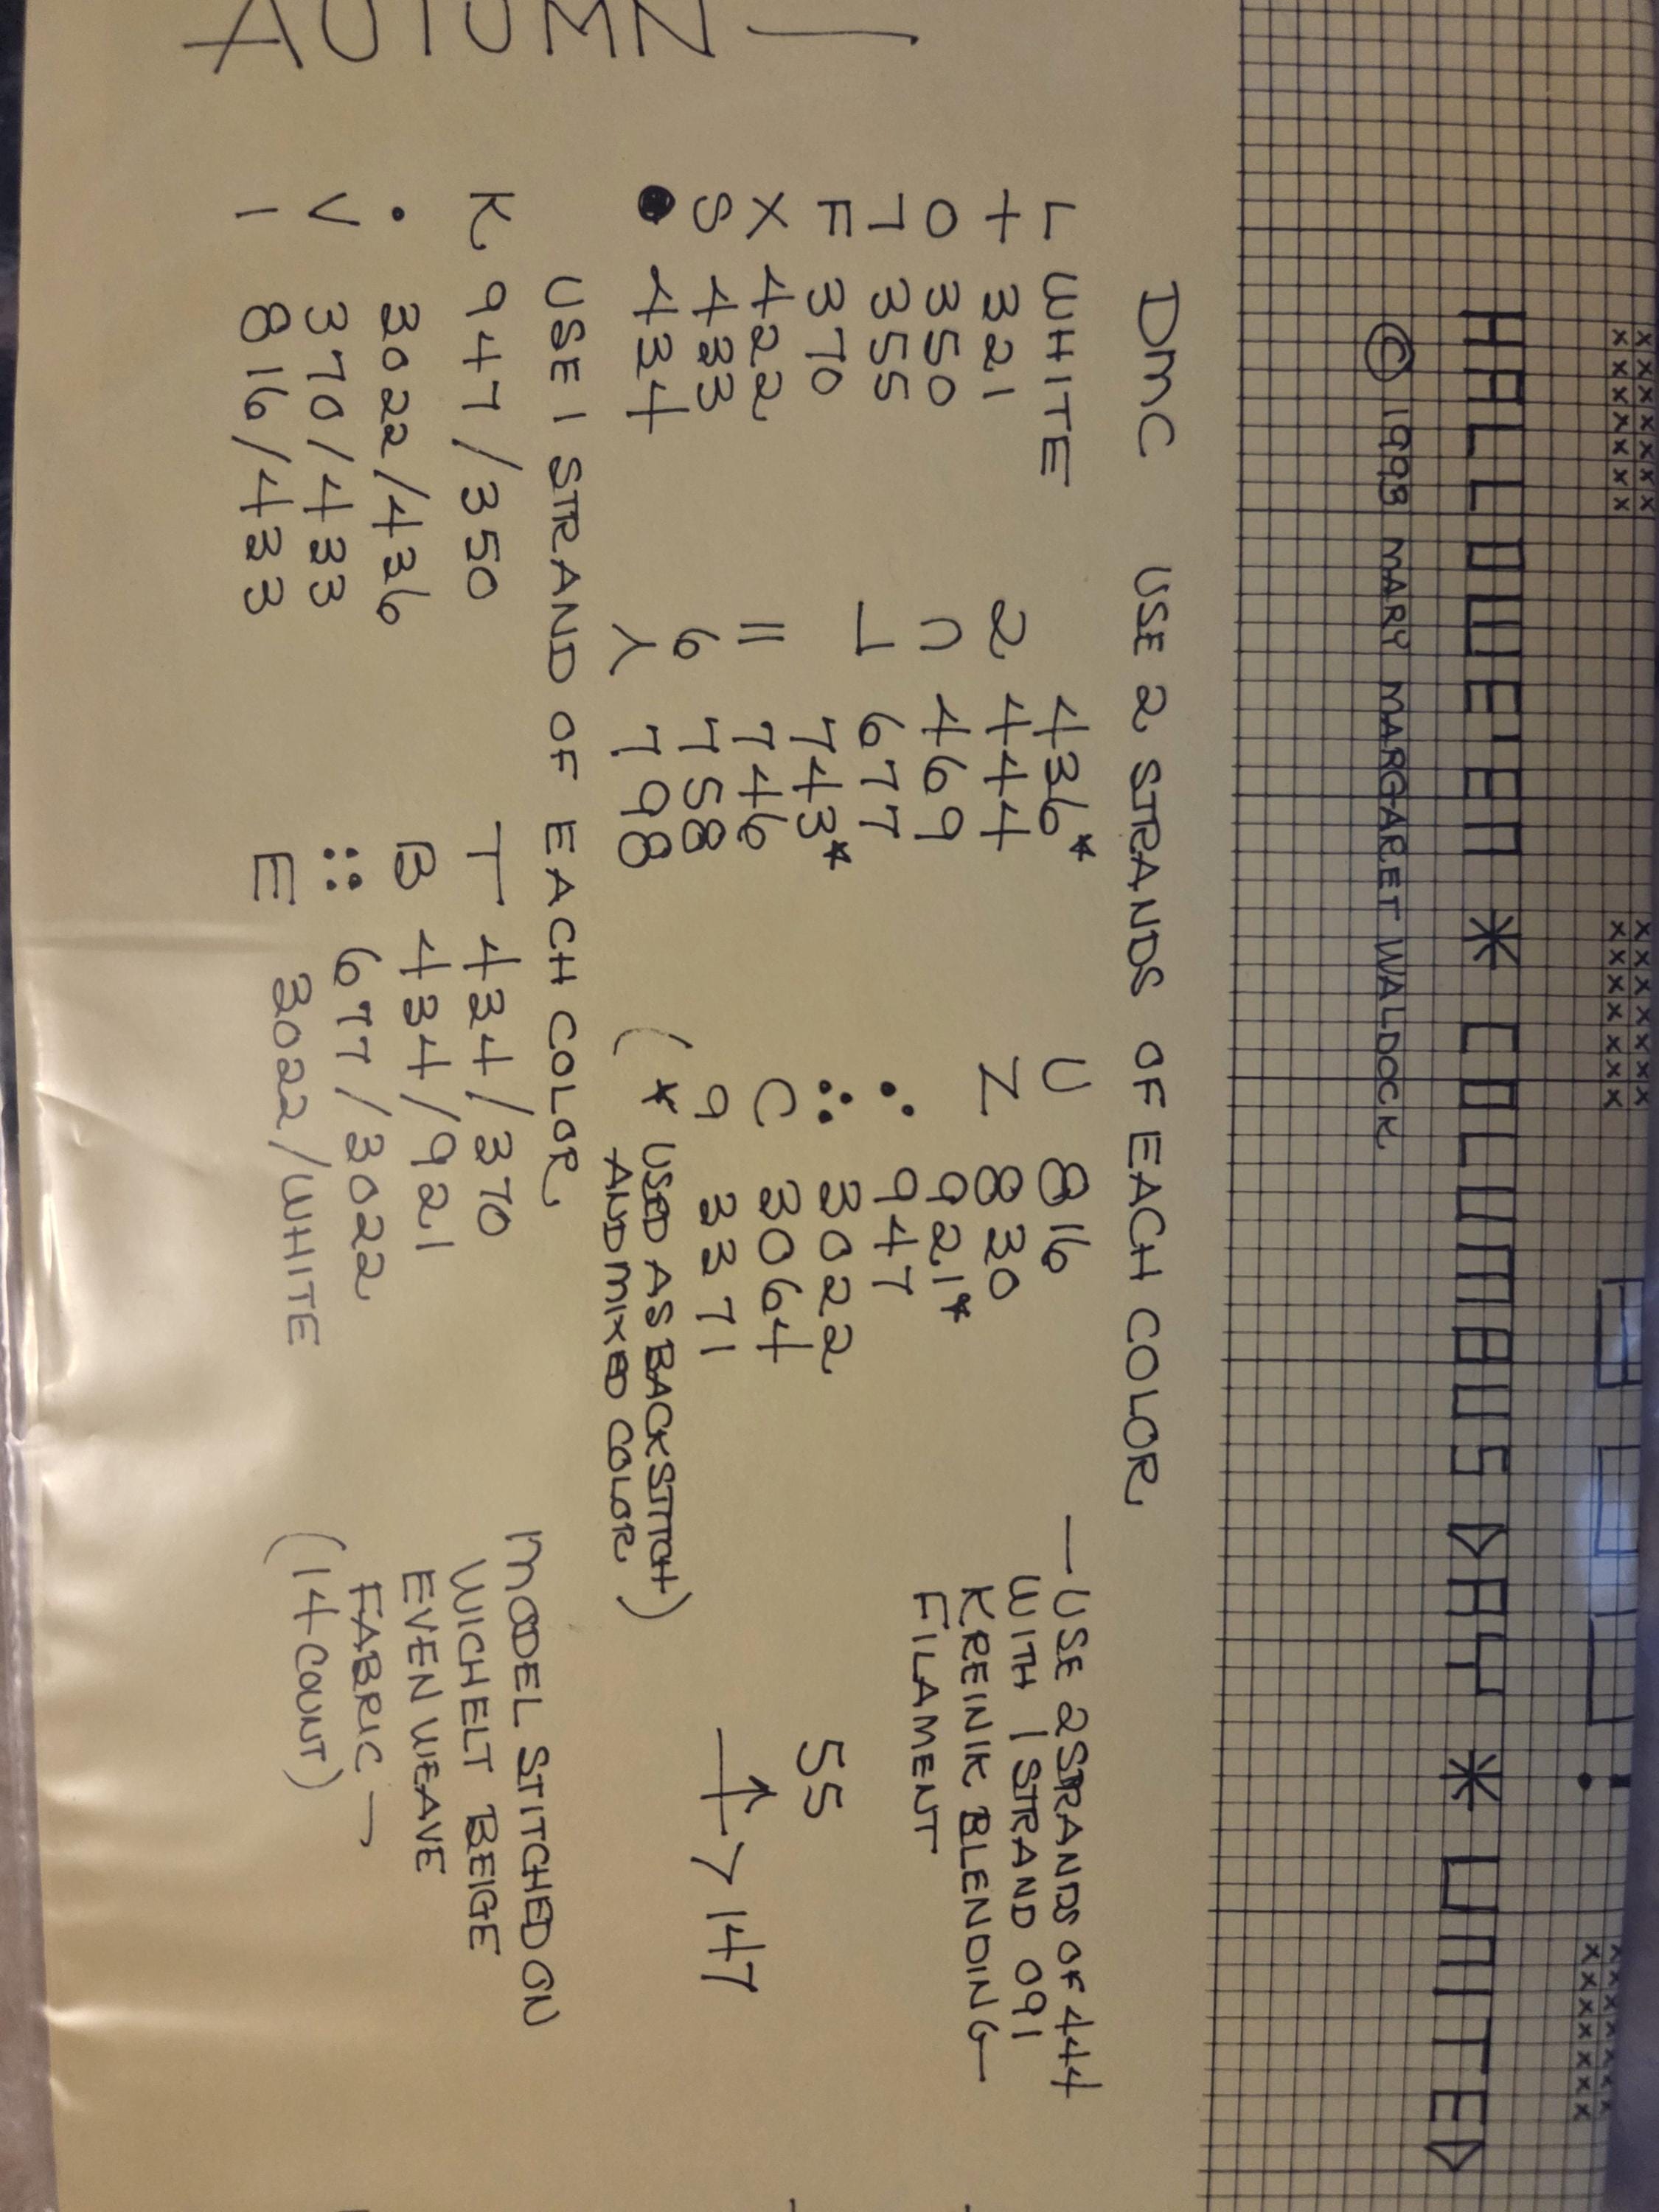 HALLOWE'EN * COLUMBUS DAY * UNITED
© 1993 MARY MARGARET WALDOCK
DMC USE 2 STRANDS OF EACH COLOR.
L WHITE 436* U 816 — USE 2 STRANDS OF 444
+ 321 2 444 Z 830 WITH 1 STRAND 091
O 350 ∩ 469 921* KREINIK BLENDING—
7 355 ⅃ 677 ∴ 947 FILAMENT
F 370 743* ∷ 3022 55
X 422 || 746 C 3064
S 433 6 758 9 3371 147
● 434 λ 798 (* USED AS BACKSTITCH
AND MIXED COLOR)
USE 1 STRAND OF EACH COLOR.
K 947/350 T 434/370 MODEL STITCHED ON
• 3022/436 B 434/921 WICHELT BEIGE
V 370/433 ∷ 677/3022 EVEN WEAVE
I 816/433 E 3022/WHITE FABRIC —
(14 COUNT)
AUTUMN —